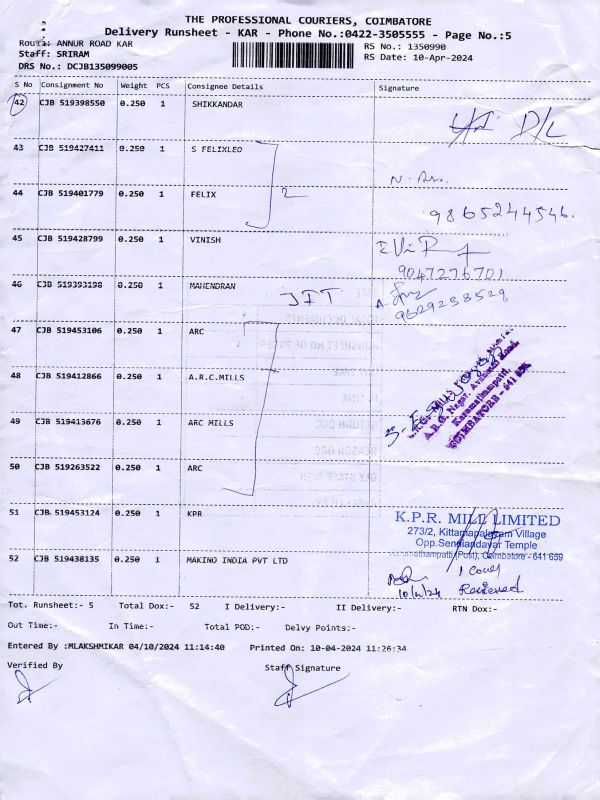 THE PROFESSIONAL COURIERS, COIMBATORE
Delivery Runsheet - KAR - Phone No.:0422-3505555 - Page No.:5
Route: ANNUR ROAD KAR
RS No.: 1350990
Staff: SRIRAM
RS Date: 10-Apr-2024
DRS No.: DCJB135099005
S No Consignment No Weight PCS Consignee Details Signature
42 CJB 519398550 0.250 1 SHIKKANDAR
D/L
43 CJB 519427411 0.250 1 S FELIXLEO
2
44 CJB 519401779 0.250 1 FELIX
9865244546.
45 CJB 519428799 0.250 1 VINISH
9047276701
46 CJB 519393198 0.250 1 MAHENDRAN
9629238529
47 CJB 519453106 0.250 1 ARC
48 CJB 519412866 0.250 1 A.R.C.MILLS
A.R.C. Nagar, Avinashi Road,
Karumathampatti
COIMBATORE - 641 659
49 CJB 519413676 0.250 1 ARC MILLS
50 CJB 519263522 0.250 1 ARC
51 CJB 519453124 0.250 1 KPR
K.P.R. MILL LIMITED
273/2, Kittampalayam Village
Opp.Sendandavar Temple
(Post), Coimbatore - 641 659
52 CJB 519438135 0.250 1 MAKINO INDIA PVT LTD
1 Cover
10/4/24 Received
Tot. Runsheet:- 5 Total Dox:- 52 I Delivery:- II Delivery:- RTN Dox:-
Out Time:- In Time:- Total POD:- Delvy Points:-
Entered By :MLAKSHMIKAR 04/10/2024 11:14:40 Printed On: 10-04-2024 11:26:34
Verified By Staff Signature